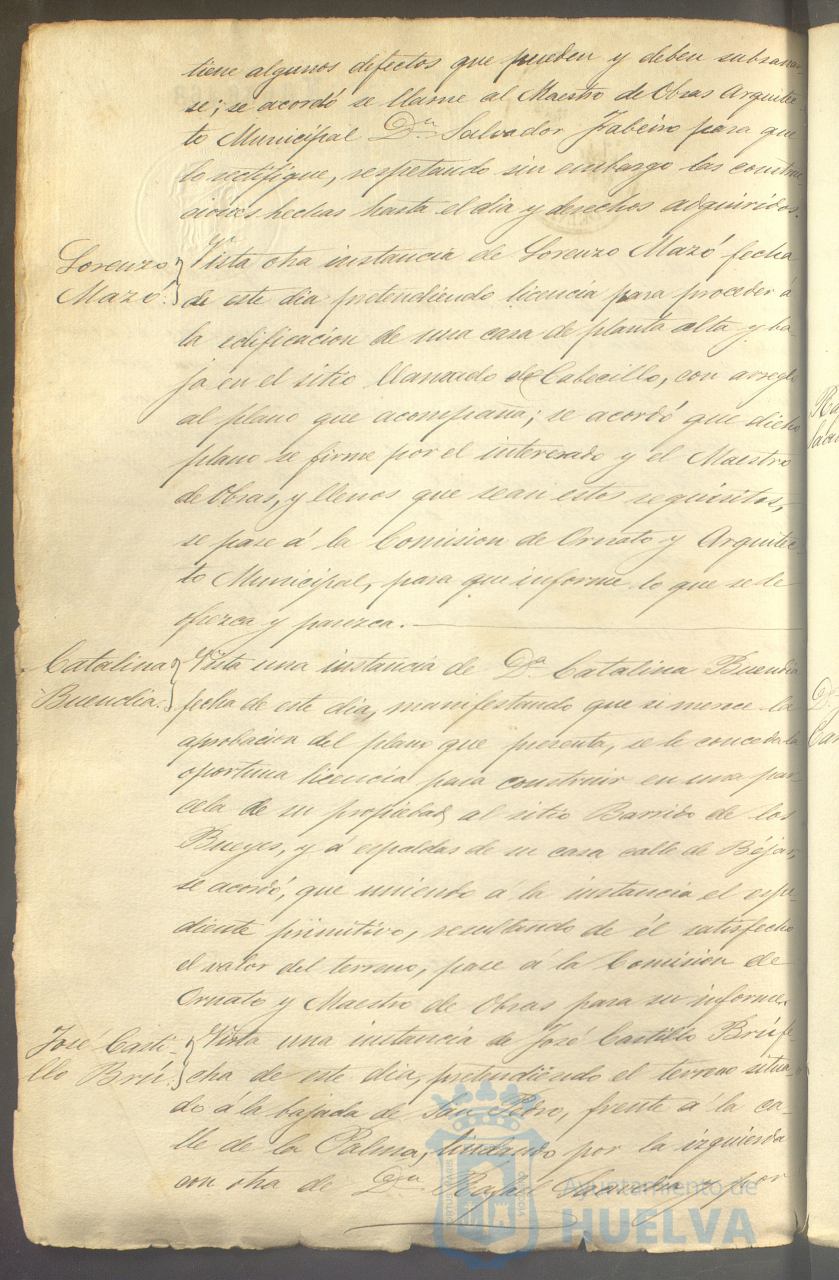 tiene algunos defectos que pueden y deben subsanar-
se; se acordó se llame al Maestro de Obras Arquitec-
to Municipal Dn Salvador Fabeiro para que
lo rectifique, respetando sin embargo las constru-
cciones hechas hasta el dia y derechos adquiridos.
Lorenzo
Mazó.
Vista otra instancia de Lorenzo Mazó fecha
de este dia pretendiendo licencia para proceder á
la edificacion de una casa de planta alta y ba-
ja en el sitio llamado del Cabecillo, con arreglo
al plano que acompaña; se acordó que dicho
plano se firme por el interesado y el Maestro
de Obras, y llenos que sean estos requisitos,
se pase á la Comision de Ornato y Arquitec-
to Municipal, para que informe lo que se le
ofrezca y parezca.
Catalina
Buendia.
Vista una instancia de Dª Catalina Buendia
fecha de este dia, manifestando que si merece la
aprobacion del plano que presenta, se le conceda la
oportuna licencia para construir en una par-
cela de su propiedad, al sitio Barrido de los
Bueyes, y á espaldas de su casa calle de Béjar,
se acordó, que uniendo á la instancia el espe-
diente primitivo, resultando de él satisfecho
el valor del terreno, pase á la Comision de
Ornato y Maestro de Obras para su informe.
José Casti-
llo Brú.
Vista una instancia de José Castillo Brú fe-
cha de este dia, pretendiendo el terreno situa-
do á la bajada de San Pedro, frente á la ca-
lle de la Palma, lindando por la izquierda
con otra de Dn Rafael Saavedra y por
Ayuntamiento de
HUELVA